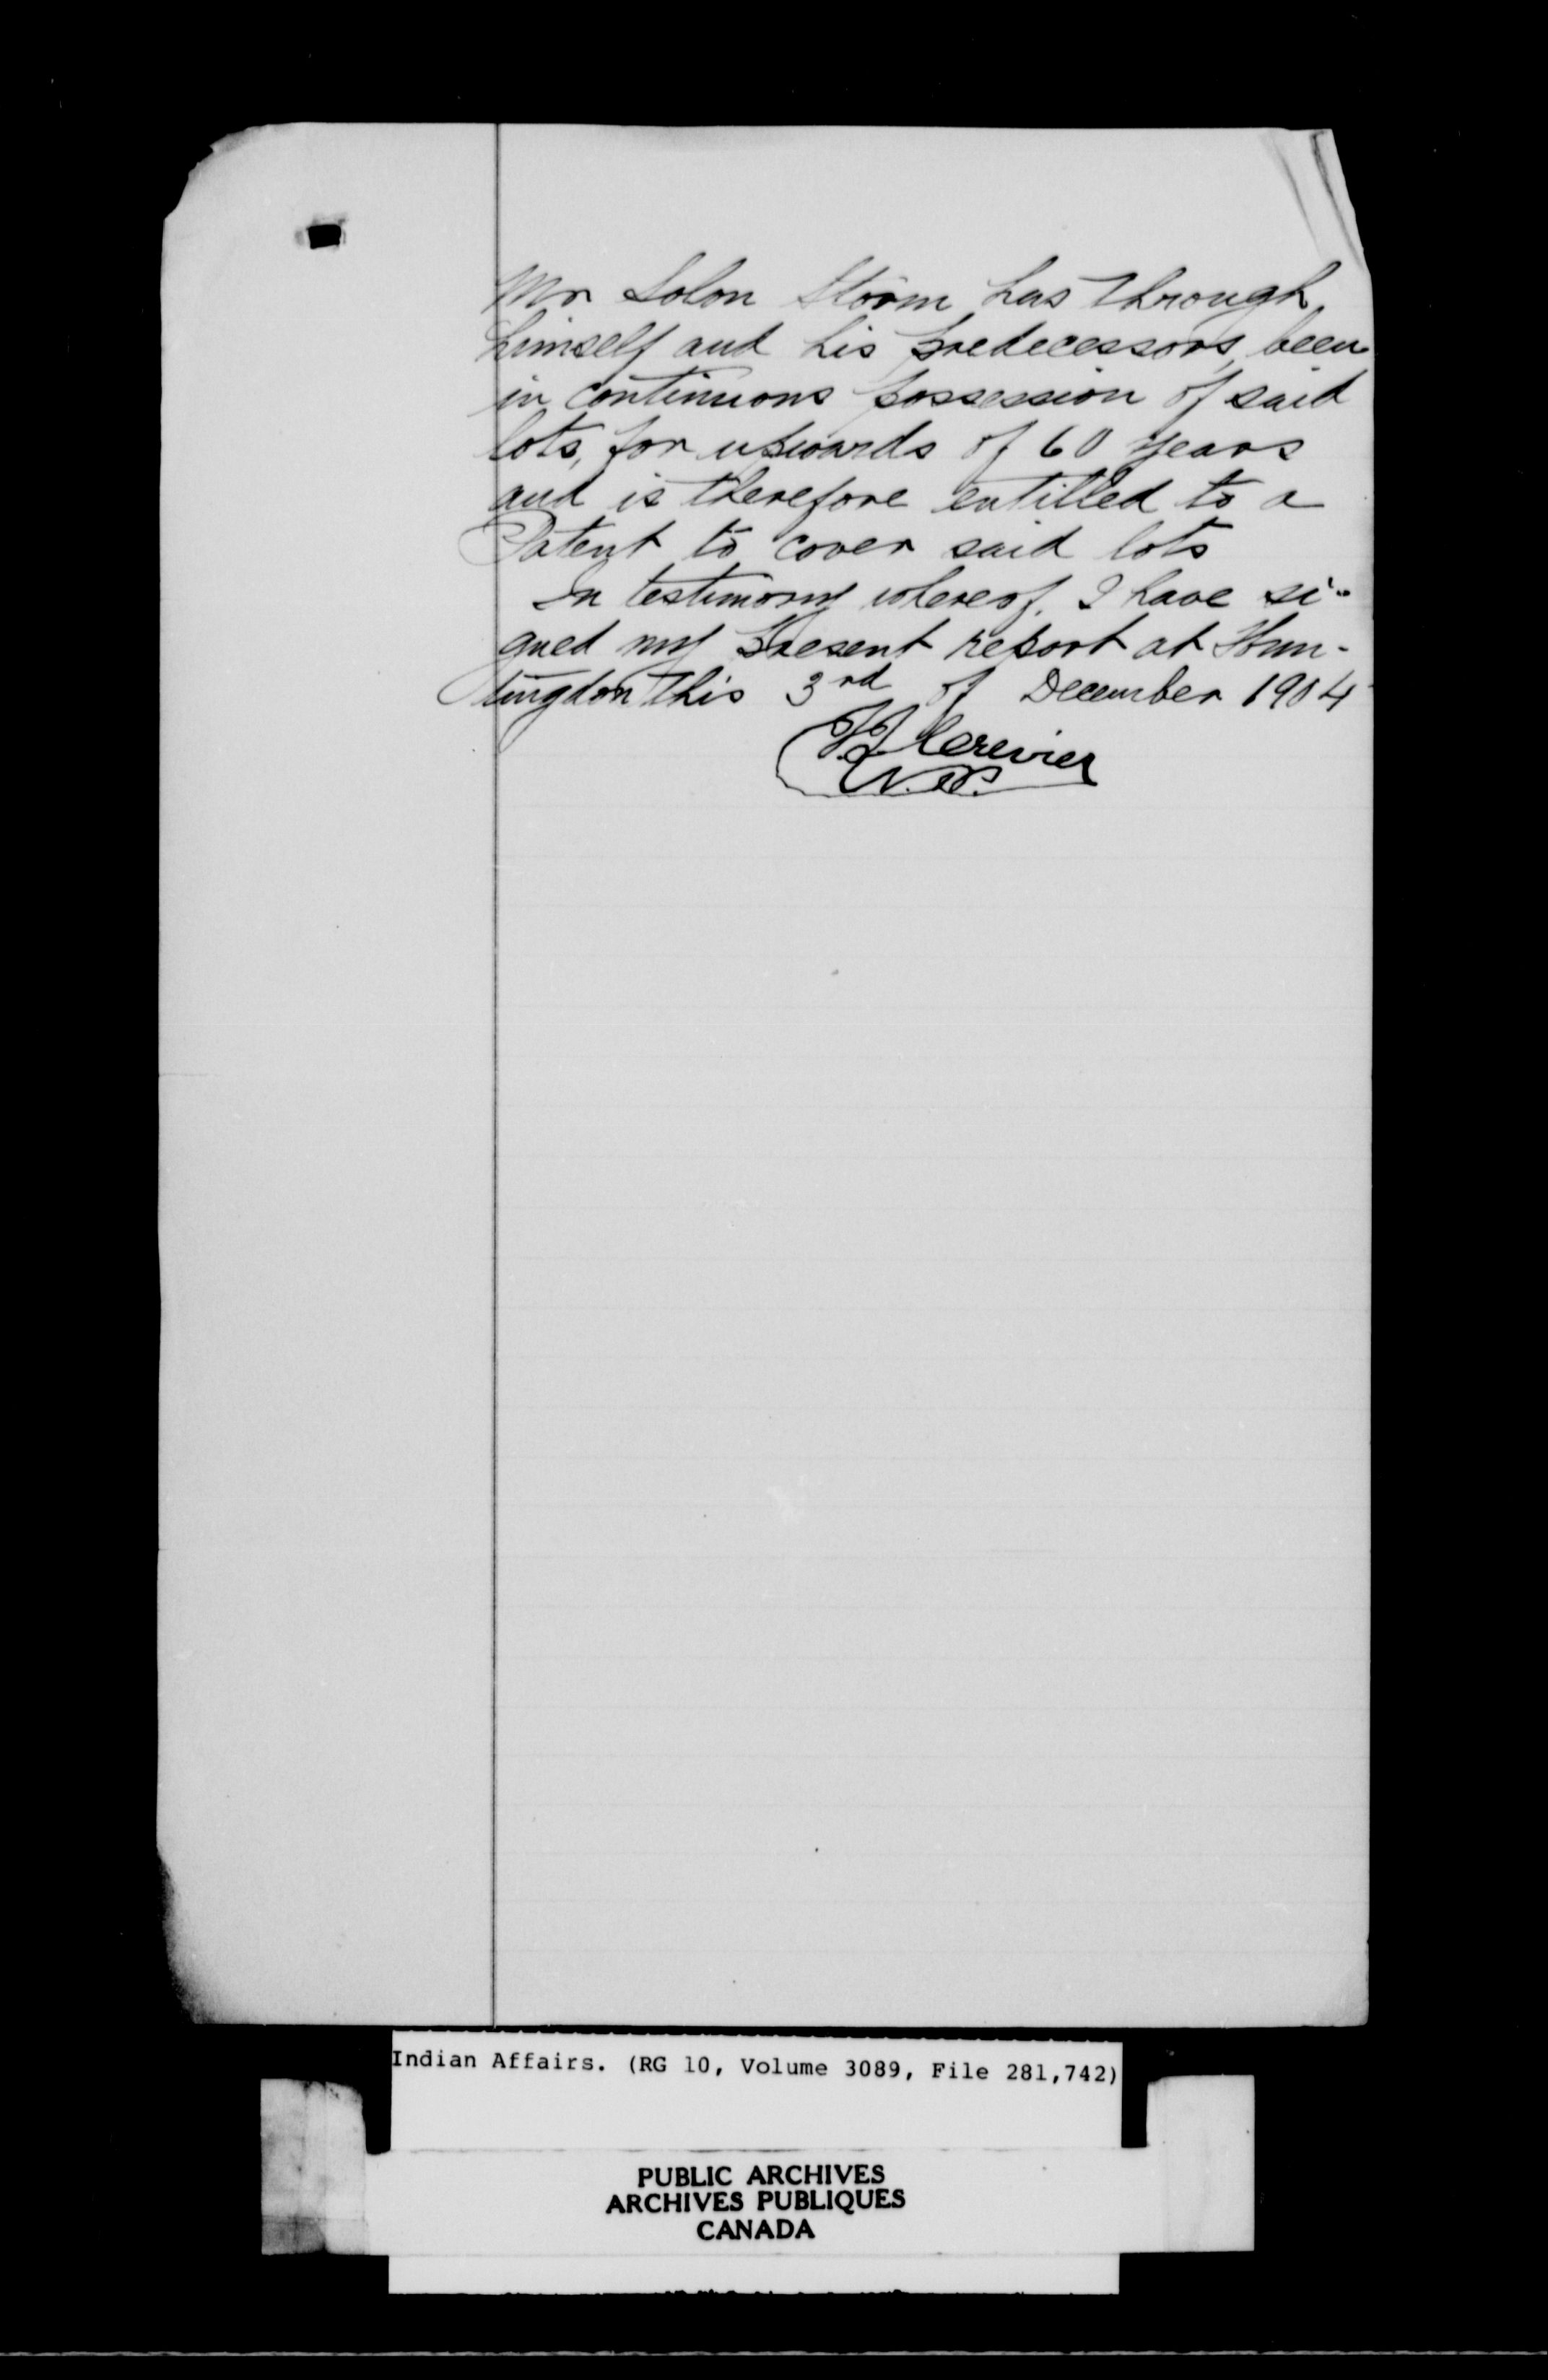 Mr Solon Storm has through
himself and his predecessors, been
in continuous possession of said
lots, for upwards of 60 years
and is therefore entitled to a
Patent to cover said lots
In testimony whereof, I have si-
gned my present report at Hun-
tingdon this 3rd of December 1904
Crevier
N.P.
Indian Affairs. (RG 10, Volume 3089, File 281,742)
PUBLIC ARCHIVES
ARCHIVES PUBLIQUES
CANADA